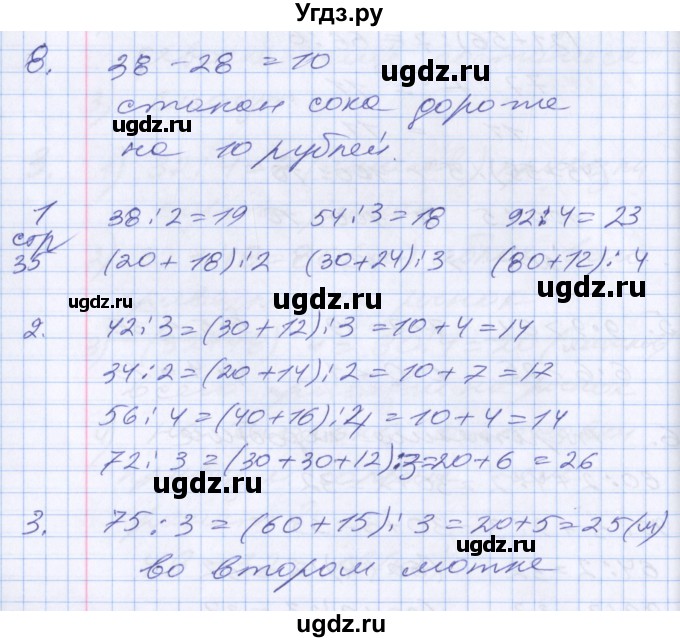 Угдз.ру
8. 38 - 28 = 10
стакан сока дороже
на 10 рублей.
1 стр 35
38 : 2 = 19 54 : 3 = 18 92 : 4 = 23
(20 + 18) : 2 (30 + 24) : 3 (80 + 12) : 4
2. 42 : 3 = (30 + 12) : 3 = 10 + 4 = 14
34 : 2 = (20 + 14) : 2 = 10 + 7 = 17
56 : 4 = (40 + 16) : 4 = 10 + 4 = 14
72 : 3 = (30 + 30 + 12) : 3 = 20 + 6 = 26
3. 75 : 3 = (60 + 15) : 3 = 20 + 5 = 25 (м)
во втором мотке
ugdz.ru
ugdz.ru
ugdz.ru
ugdz.ru
ugdz.ru
ugdz.ru
ugdz.ru
ugdz.ru
ugdz.ru
ugdz.ru